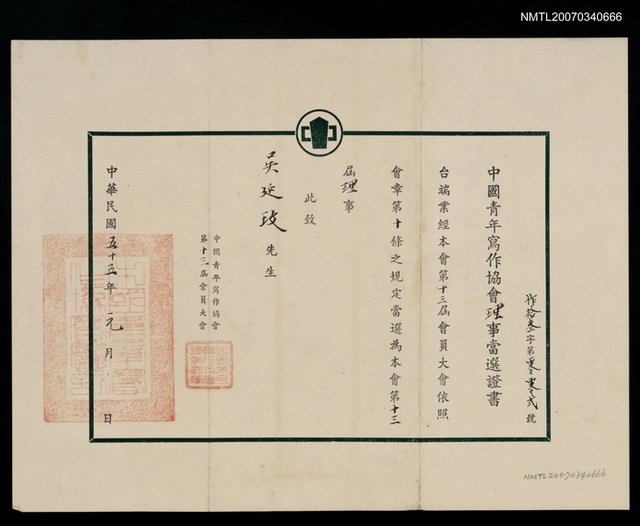 NMTL20070340666
中國青年寫作協會理事當選證書
作拾叁字第零零貳號
台端業經本會第十三屆會員大會依照
會章第十條之規定當選為本會第十三
屆理事
此致
吳延玫先生
中國青年寫作協會
第十三屆會員大會
中華民國五十五年元月 日
NMTL20070340666